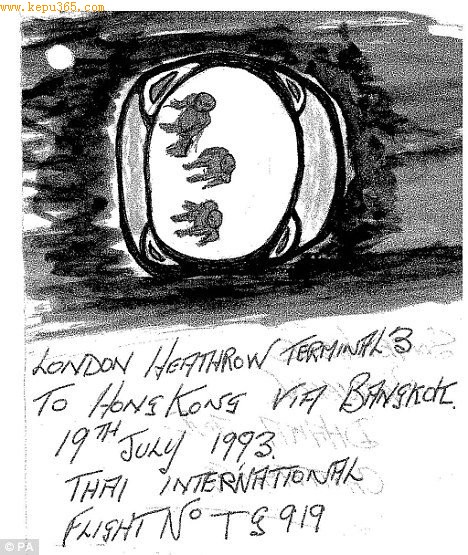 www.kepu365.com
LONDON HEATHROW TERMINAL 3
TO HONG KONG VIA BANGKOK.
19TH JULY 1993.
THAI INTERNATIONAL
FLIGHT No TG 919
© PA